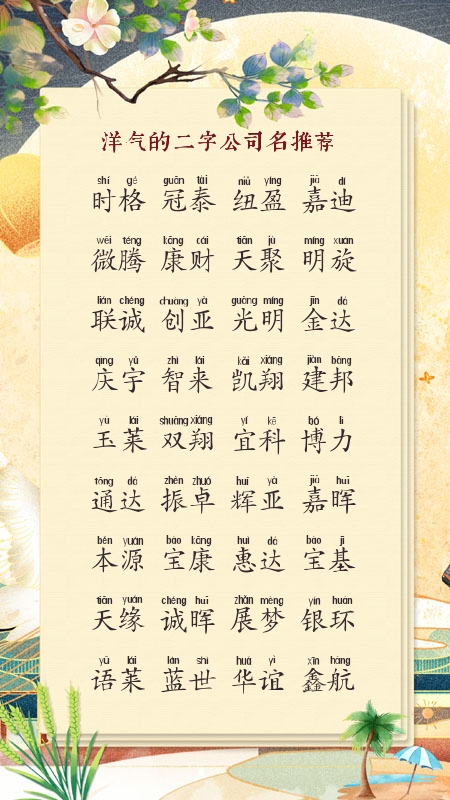 洋气的二字公司名推荐
shí gé guān tài niǔ yíng jiā dí
时格 冠泰 纽盈 嘉迪
wēi téng kāng cái tiān jù míng xuán
微腾 康财 天聚 明旋
lián chéng chuàng yà guāng míng jīn dá
联诚 创亚 光明 金达
qìng yǔ zhì lái kǎi xiáng jiàn bāng
庆宇 智来 凯翔 建邦
yù lái shuāng xiáng yí kē bó lì
玉莱 双翔 宜科 博力
tōng dá zhèn zhuó huī yà jiā huī
通达 振卓 辉亚 嘉晖
běn yuán bǎo kāng huì dá bǎo jī
本源 宝康 惠达 宝基
tiān yuán chéng huī zhǎn mèng yín huán
天缘 诚晖 展梦 银环
yǔ lái lán shì huá yì xīn háng
语莱 蓝世 华谊 鑫航